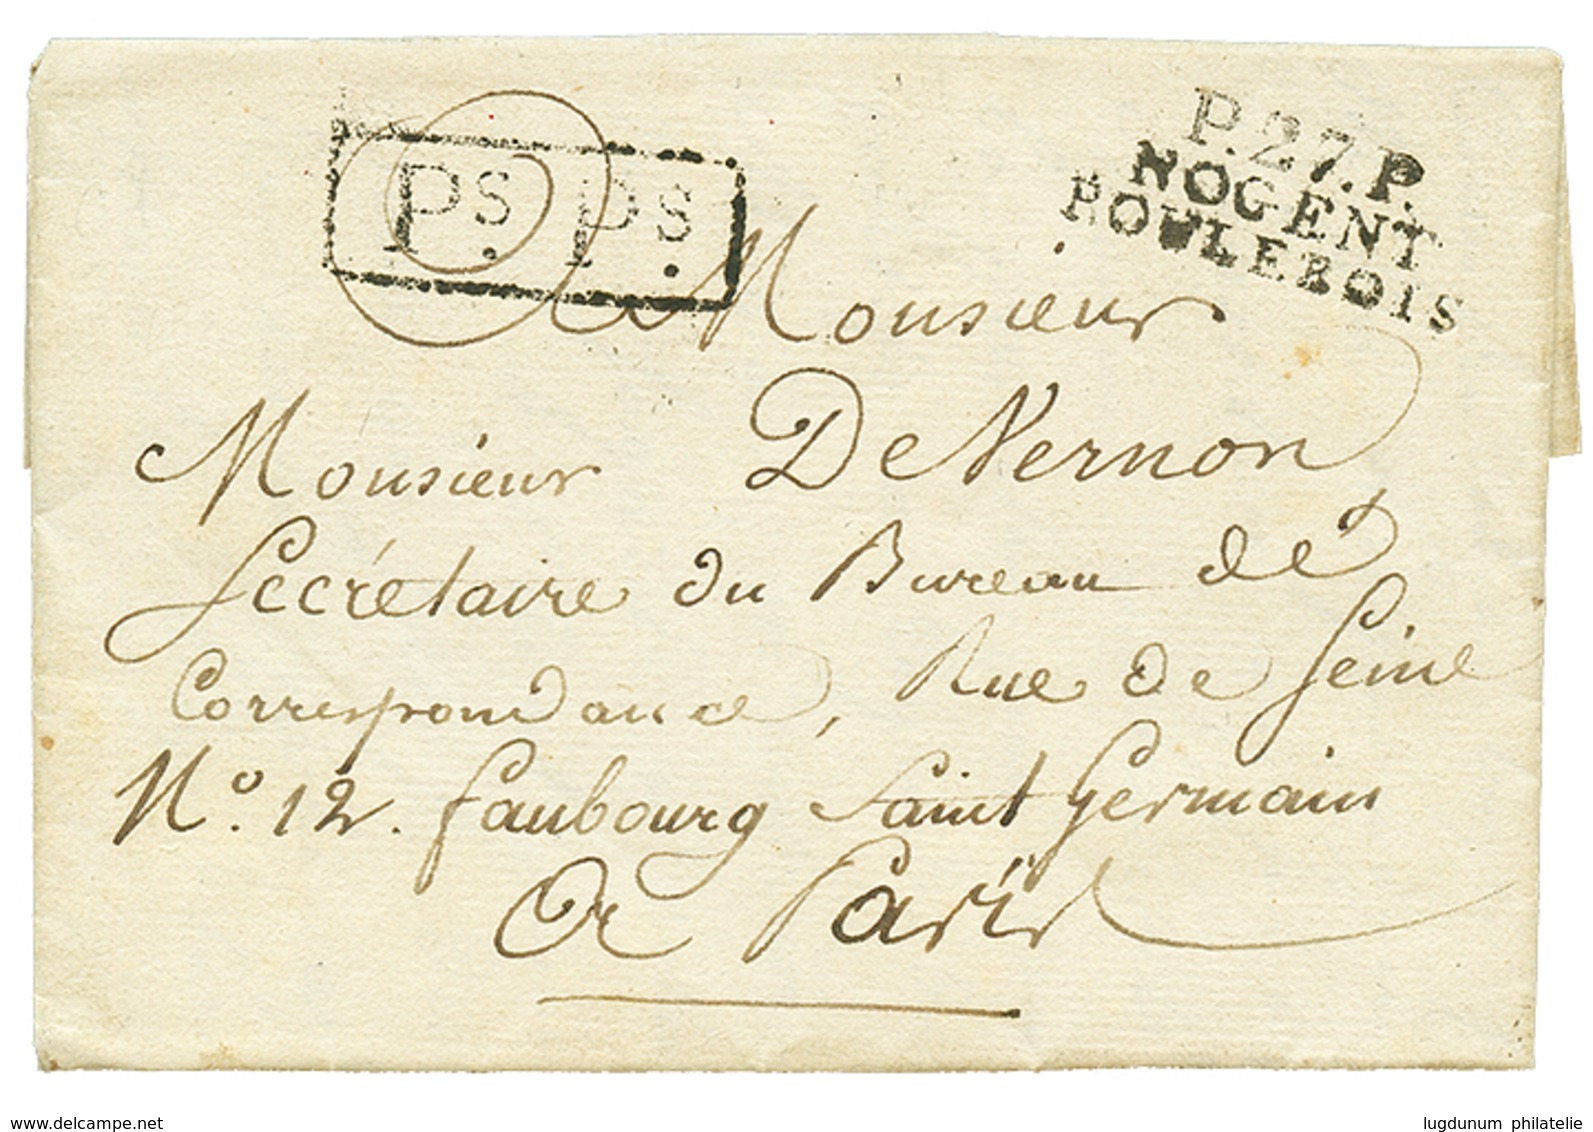 Ps. Ps.
P.27.P.
NOGENT
ROULEBOIS
Monsieur
Monsieur De Vernon,
Secrétaire du Bureau de
Correspondance, Rue de Seine
No. 12. faubourg Saint Germain
A Paris
www.delcampe.net
lugdunum philatelie